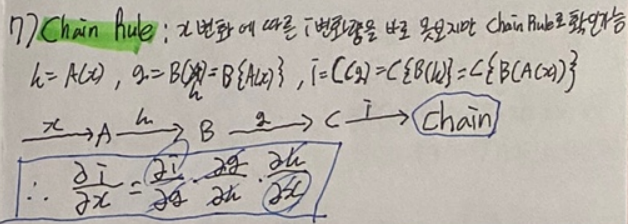 7) Chain Rule : x 변화에 따른 i 변화량을 바로 못보지만 Chain Rule로 확인가능
h = A(x), g = B(h) = B{A(x)}, i = C(g) = C{B(h)} = C{B(A(x))}
x → A h → B g → C i → Chain
∴ ∂i/∂x = ∂i/∂g · ∂g/∂h · ∂h/∂x